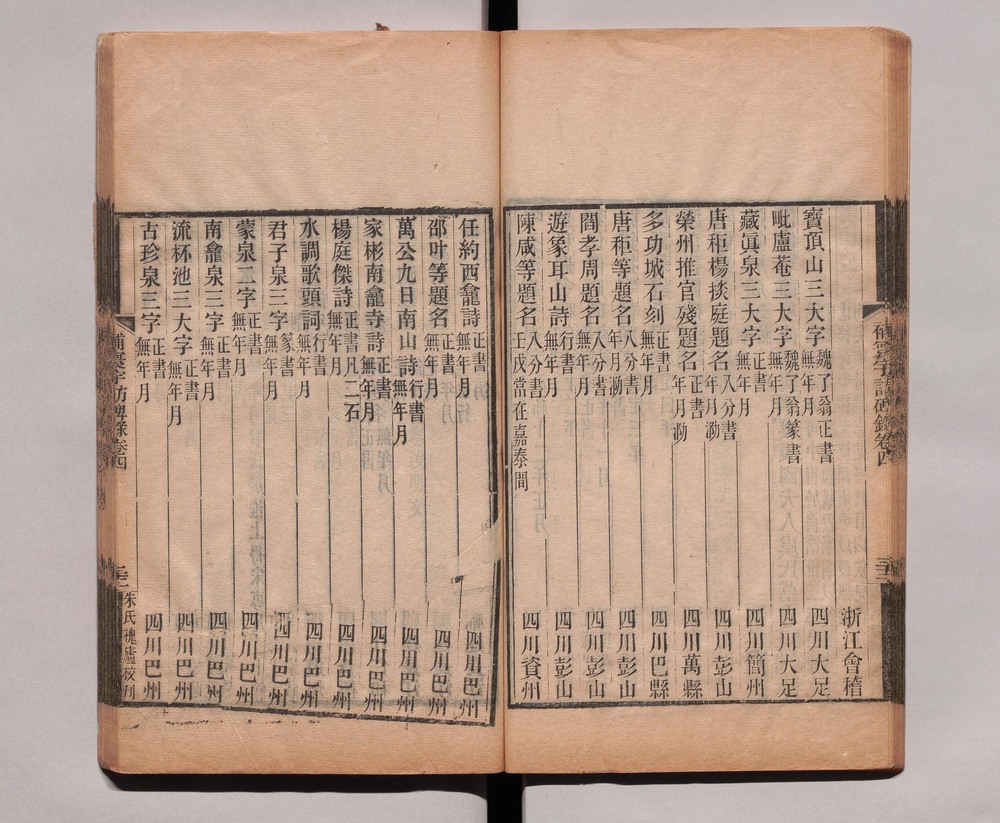 浙江會稽
寶頂山三大字 魏了翁正書 無年月 四川大足
毗盧菴三大字 魏了翁篆書 無年月 四川大足
藏眞泉三大字 正書 無年月 四川簡州
唐秬楊掞庭題名 八分書 年月泐 四川彭山
榮州推官殘題名 正書 年月泐 四川萬縣
多功城石刻 正書 無年月 四川巴縣
唐秬等題名 八分書 年月泐 四川彭山
閻孝周題名 八分書 無年月 四川彭山
遊象耳山詩 行書 無年月 四川彭山
陳咸等題名 八分書 壬戌當在嘉泰間 四川資州
任約西龕詩 正書 無年月 四川巴州
邵叶等題名 正書 無年月 四川巴州
萬公九日南山詩 行書 無年月 四川巴州
家彬南龕寺詩 正書 無年月 四川巴州
楊庭傑詩 正書凡二石 無年月 四川巴州
水調歌頭詞 行書 無年月 四川巴州
君子泉三字 篆書 無年月 四川巴州
蒙泉二字 正書 無年月 四川巴州
南龕泉三字 正書 無年月 四川巴州
流杯池三大字 正書 無年月 四川巴州
古珍泉三字 正書 無年月 四川巴州
補寰宇訪碑錄卷四
朱氏槐廬校刊